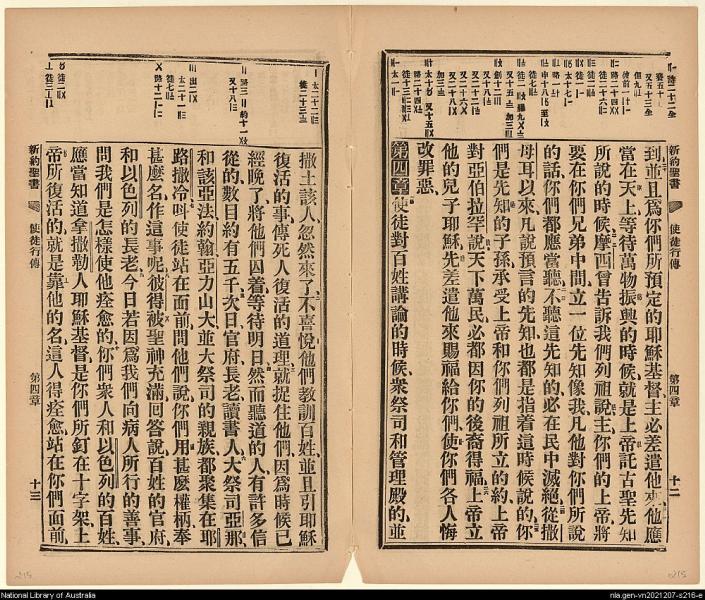 新約聖書 使徒行傳 第四章 十二
到並且爲你們所預定的耶穌基督主必差遣他來他應
當在天上等待萬物振興的時候就是上帝託古聖先知
所說的時候摩西曾告訴我們列祖說主你們的上帝將
要在你們兄弟中間立一位先知像我凡他對你們所說
的話你們都應當聽不聽這先知的必在民中滅絕從撒
母耳以來凡說預言的先知也都是指着這時候說的你
們是先知的子孫承受上帝和你們列祖所立的約上帝
對亞伯拉罕說天下萬民必都因你的後裔得福上帝立
他的兒子耶穌先差遣他來賜福給你們使你們各人悔
改罪惡
第四章使徒對百姓講論的時候衆祭司和管理殿的並
撒土該人忽然來了不喜悅他們教訓百姓並且引耶穌
復活的事傳死人復活的道理就捉住他們因爲時候已
經晚了將他們囚着等待明日然而聽道的人有許多信
從的數目約有五千次日官府長老讀書人大祭司亞那
和該亞法約翰亞力山大並大祭司的親族都聚集在耶
路撒冷呌使徒站在面前問他們說你們用甚麼權柄奉
甚麼名作這事呢彼得被聖神充滿回答說百姓的官府
和以色列的長老今日若因爲我們向病人所行的善事
問我們是怎樣使他痊愈的你們衆人和以色列的百姓
應當知道拿撒勒人耶穌基督是你們所釘在十字架上
帝所復活的就是靠他的名這人得痊愈站在你們面前
新約聖書 使徒行傳 第四章 十三
National Library of Australia
nla.gen-vn2021207-s216-e